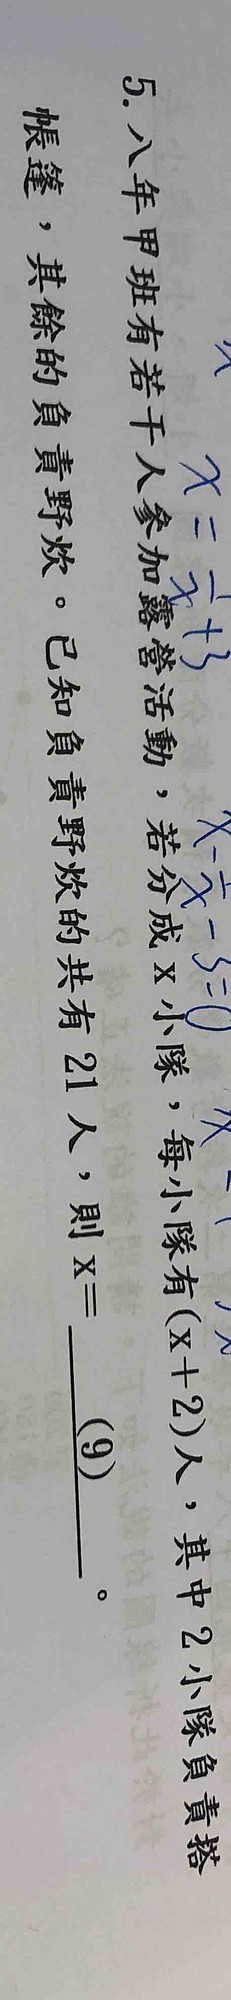 x = 1/x + 3
x - 1/x - 3 = 0
5. 八年甲班有若干人參加露營活動，若分成 x 小隊，每小隊有(x＋2)人，其中 2 小隊負責搭
帳篷，其餘的負責野炊。已知負責野炊的共有 21 人，則 x＝ (9) 。